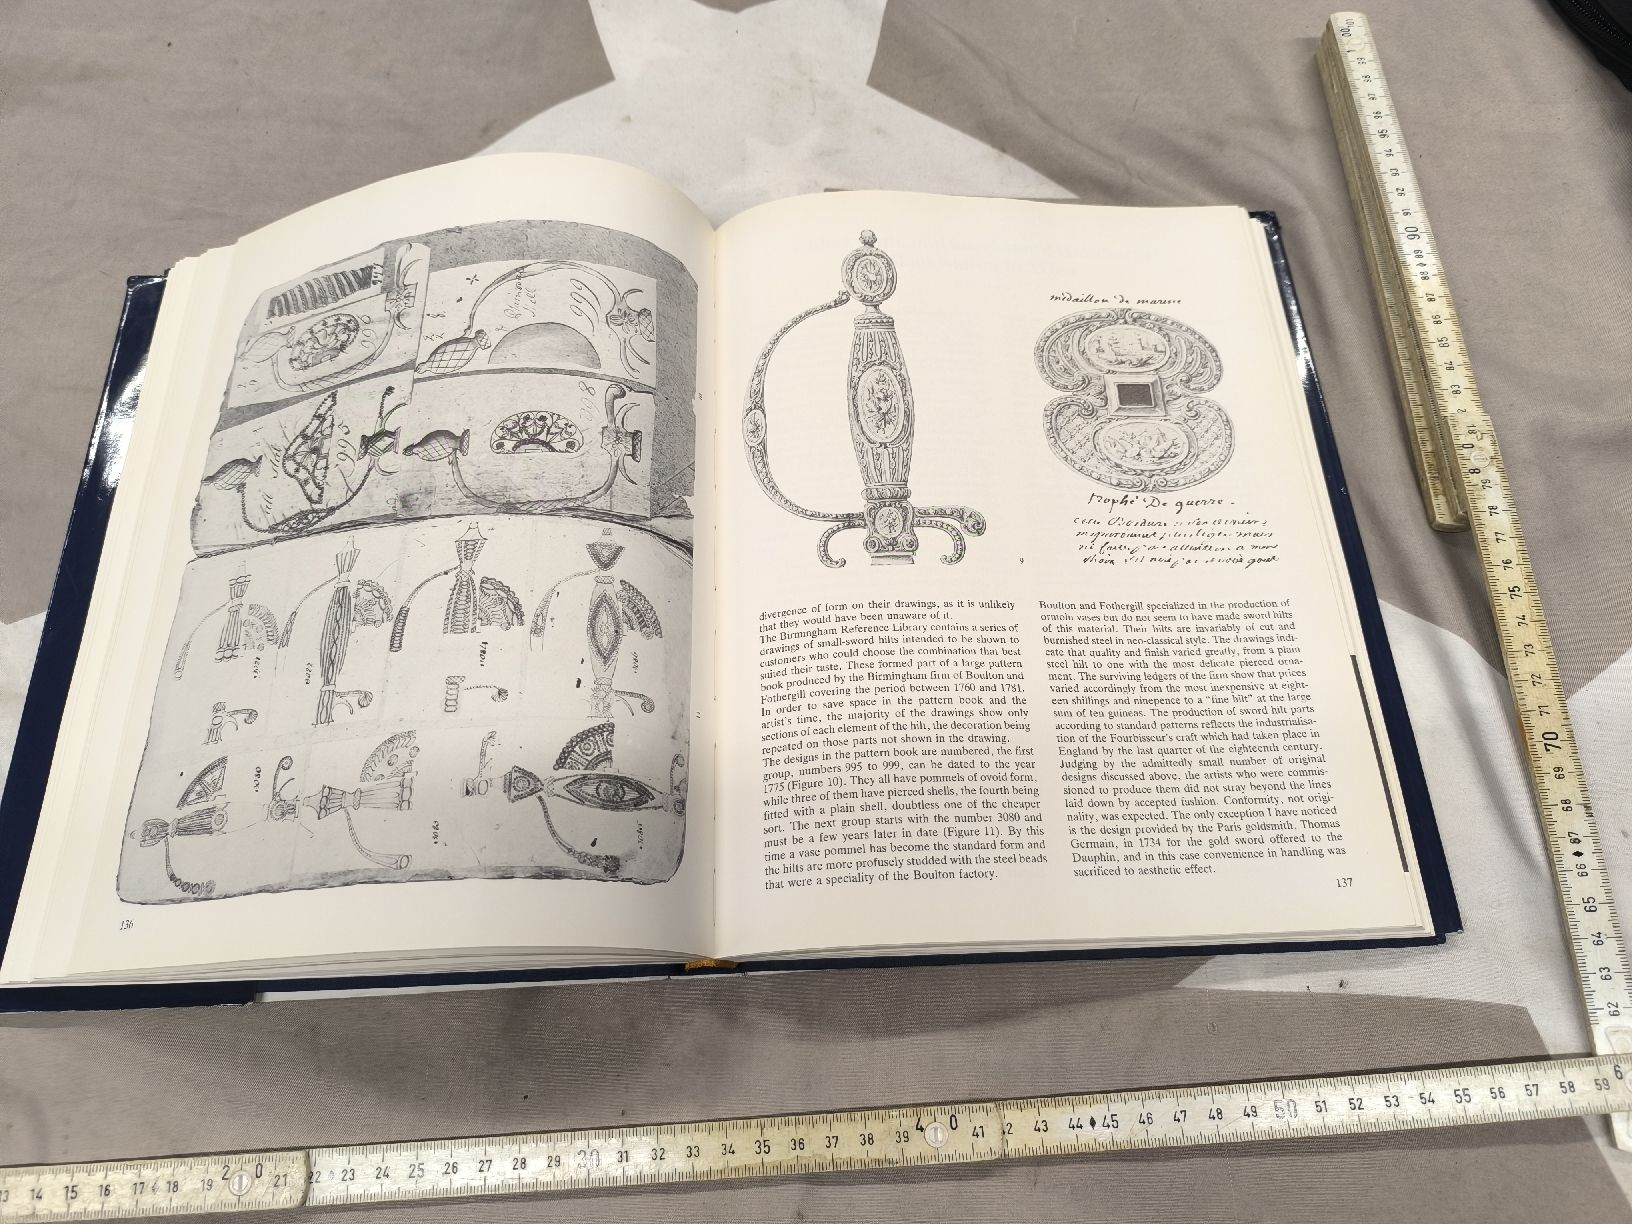 136
10
11
medaillon de marine
trophé De guerre.
9
divergence of form on their drawings, as it is unlikely
that they would have been unaware of it.
The Birmingham Reference Library contains a series of
drawings of small-sword hilts intended to be shown to
customers who could choose the combination that best
suited their taste. These formed part of a large pattern
book produced by the Birmingham firm of Boulton and
Fothergill covering the period between 1760 and 1781.
In order to save space in the pattern book and the
artist's time, the majority of the drawings show only
sections of each element of the hilt, the decoration being
repeated on those parts not shown in the drawing.
The designs in the pattern book are numbered, the first
group, numbers 995 to 999, can be dated to the year
1775 (Figure 10). They all have pommels of ovoid form,
while three of them have pierced shells, the fourth being
fitted with a plain shell, doubtless one of the cheaper
sort. The next group starts with the number 3080 and
must be a few years later in date (Figure 11). By this
time a vase pommel has become the standard form and
the hilts are more profusely studded with the steel beads
that were a speciality of the Boulton factory.
Boulton and Fothergill specialized in the production of
ormolu vases but do not seem to have made sword hilts
of this material. Their hilts are invariably of cut and
burnished steel in neo-classical style. The drawings indi-
cate that quality and finish varied greatly, from a plain
steel hilt to one with the most delicate pierced orna-
ment. The surviving ledgers of the firm show that prices
varied accordingly from the most inexpensive at eight-
een shillings and ninepence to a "fine hilt" at the large
sum of ten guineas. The production of sword hilt parts
according to standard patterns reflects the industrialisa-
tion of the Fourbisseur's craft which had taken place in
England by the last quarter of the eighteenth century.
Judging by the admittedly small number of original
designs discussed above, the artists who were commis-
sioned to produce them did not stray beyond the lines
laid down by accepted fashion. Conformity, not origi-
nality, was expected. The only exception I have noticed
is the design provided by the Paris goldsmith, Thomas
Germain, in 1734 for the gold sword offered to the
Dauphin, and in this case convenience in handling was
sacrificed to aesthetic effect.
137
14 15 16 17 18 19 20 21 22 23 24 25 26 27 28 29 30 31 32 33 34 35 36 37 38 39 40 41 42 43 44 45 46 47 48 49 50 51 52 53 54 55 56 57 58 59 6
62 63 64 65 66 67 68 69 70 71 72 73 74 75 76 77 78 79 80 81 82 83 84 85 86 87 88 89 90 91 92 93 94 95 96 97 98 99 100 101